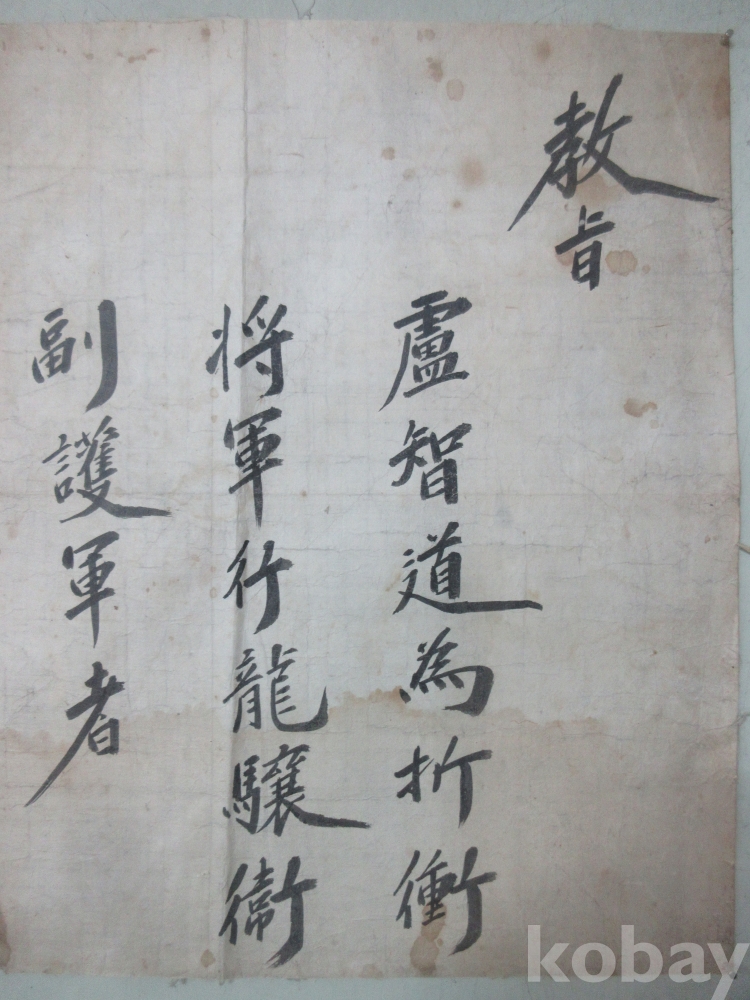 教旨
盧智道為折衝
将軍行龍驤衛
副護軍者
kobay